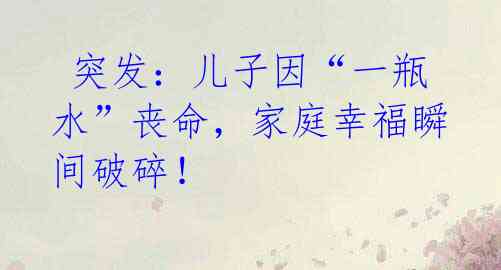 突发：儿子因“一瓶
水”丧命，家庭幸福瞬
间破碎！